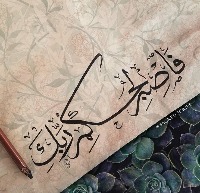 فاصبر لحكم ربك